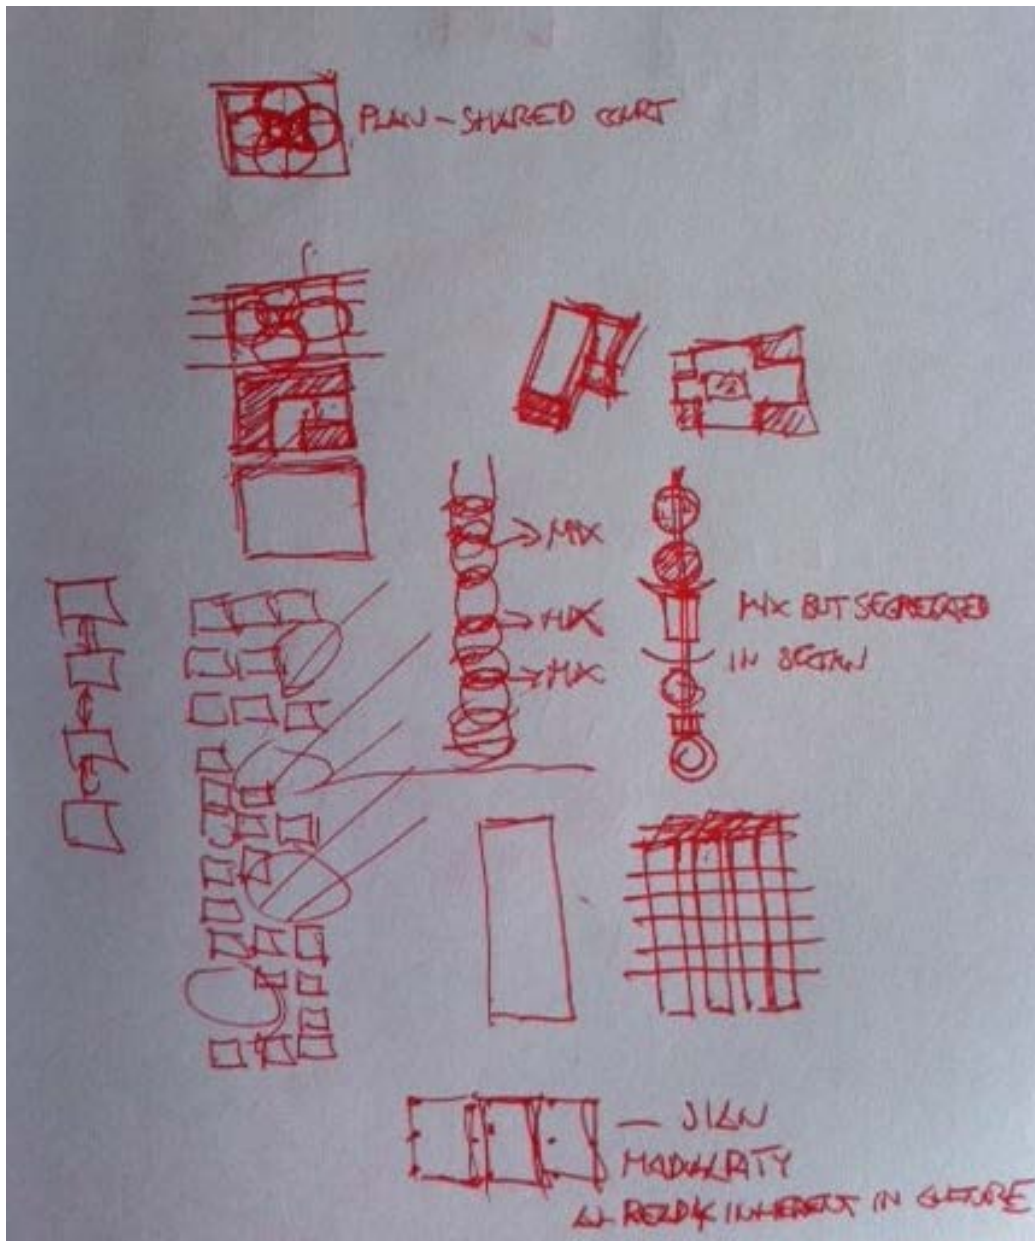 PLAN - SHARED COURT
→ MIX
→ MIX
→ MIX
MIX BUT SEGREGATED
IN SECTION
— JIAN
MODULARITY
INHERENT IN CULTURE